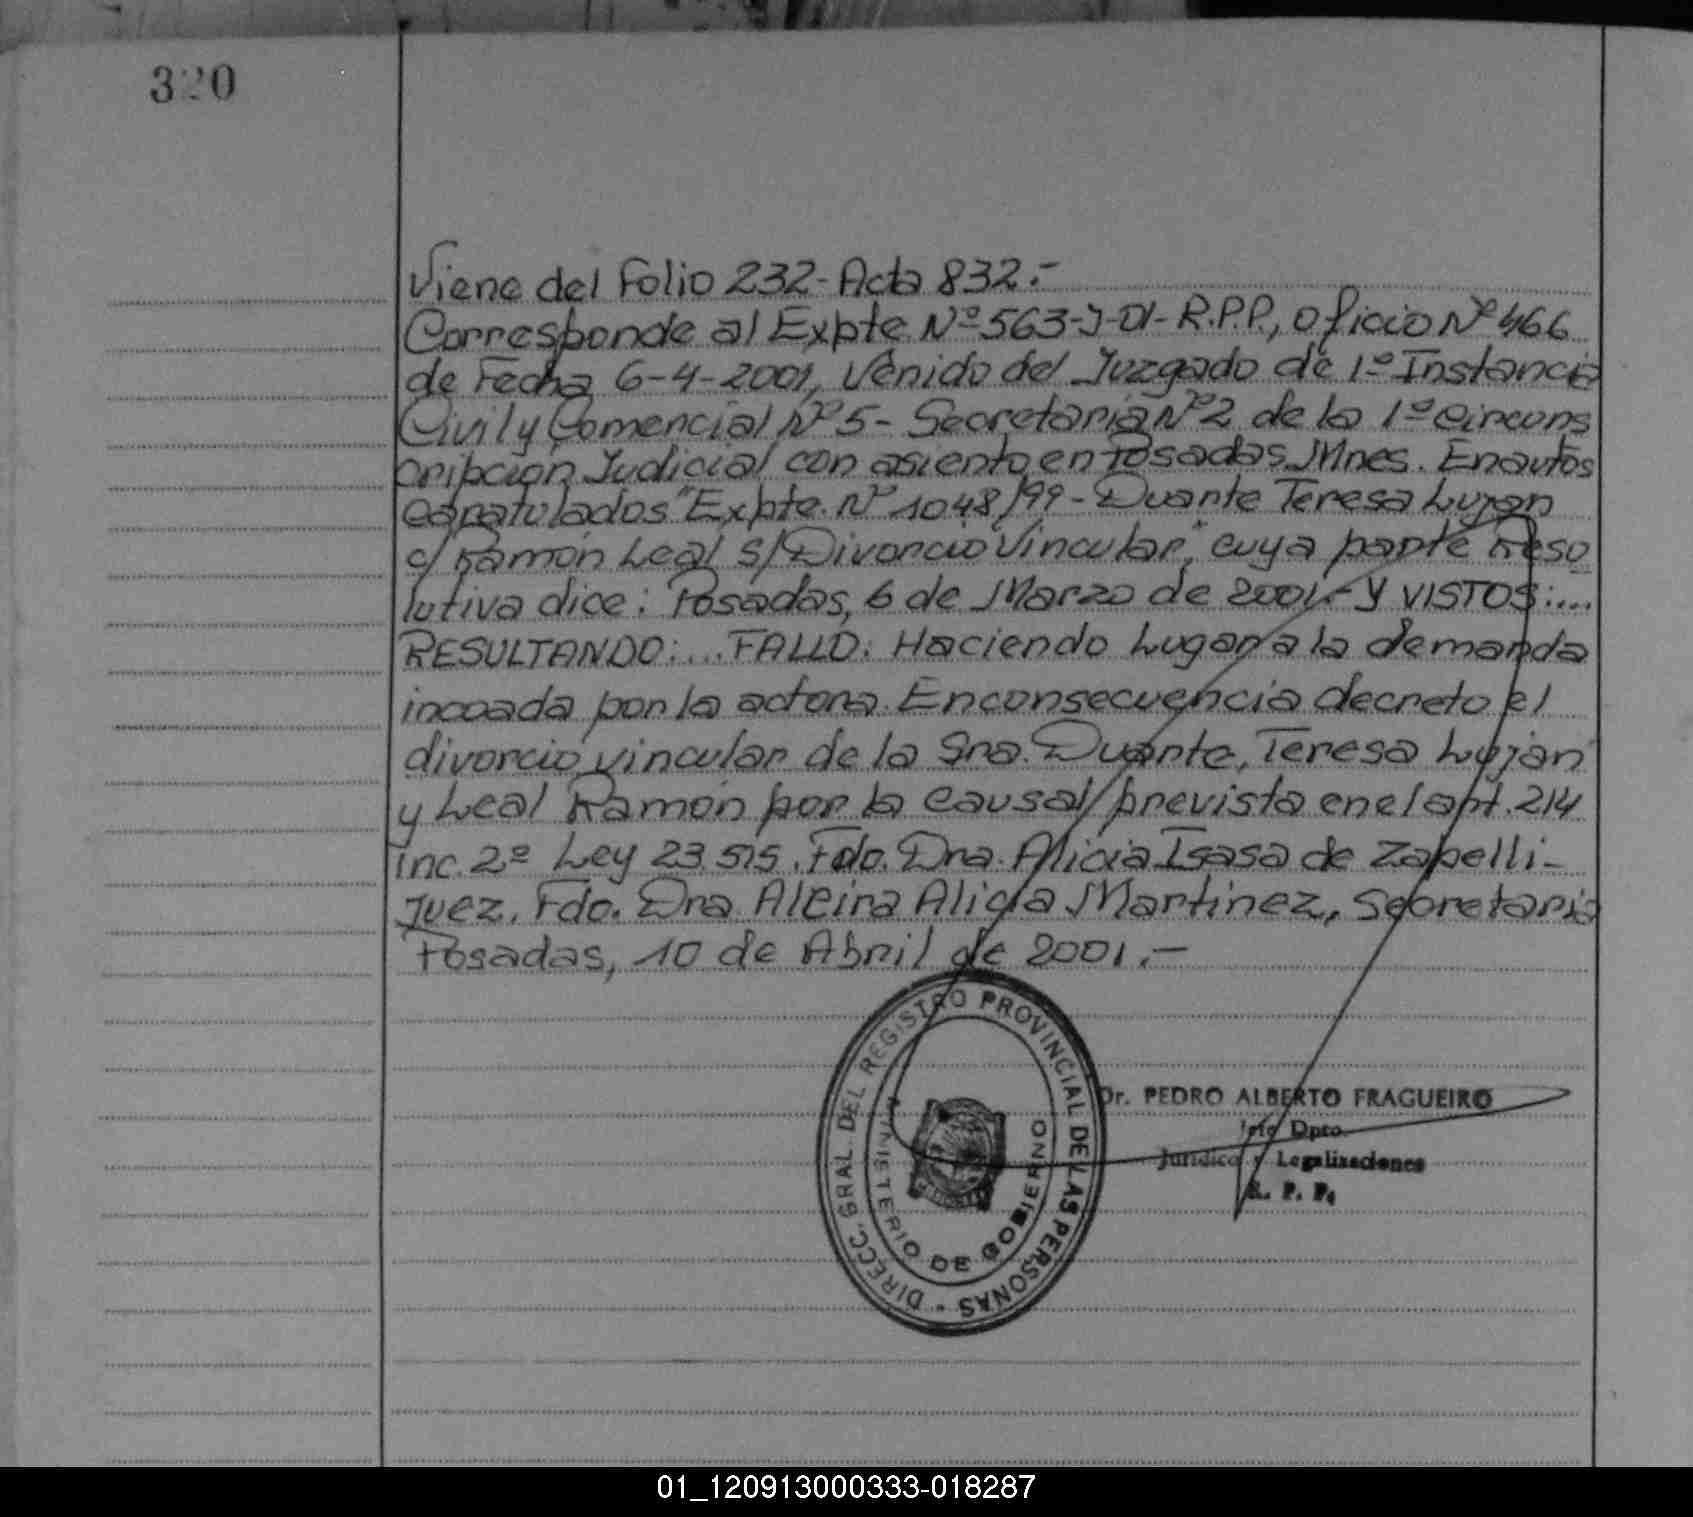 320
Viene del Folio 232-Acta 832.-
Corresponde al Expte Nº 563-J-01-R.P.P., oficio Nº 466
de Fecha 6-4-2001, Venido del Juzgado de 1º Instancia
Civil y Comercial Nº 5- Secretaria Nº 2 de la 1º Circuns
cripcion Judicial con asiento en Posadas Mnes. En autos
caratulados "Expte. Nº 1048/99- Duarte Teresa Lujan
c/ Ramón Leal S/Divorcio Vincular", cuya parte Reso
lutiva dice: Posadas, 6 de Marzo de 2001.- Y VISTOS:...
RESULTANDO:...FALLO: Haciendo Lugar a la demanda
incoada por la actora. En consecuencia decreto el
divorcio vincular de la Sra. Duarte, Teresa Lujan
y Leal Ramón por la causal prevista en el art. 214
inc. 2º Ley 23.515. Fdo. Dra. Alicia Isasa de Zapelli-
Juez. Fdo. Dra. Alcira Alicia Martinez, Secretaria
Posadas, 10 de Abril de 2001.-
DIRECC. GRAL. DEL REGISTRO PROVINCIAL DE LAS PERSONAS
MINISTERIO DE GOBIERNO
Dr. PEDRO ALBERTO FRAGUEIRO
Jefe Dpto.
Jurídico y Legalizaciones
R. P. P.
01_120913000333-018287